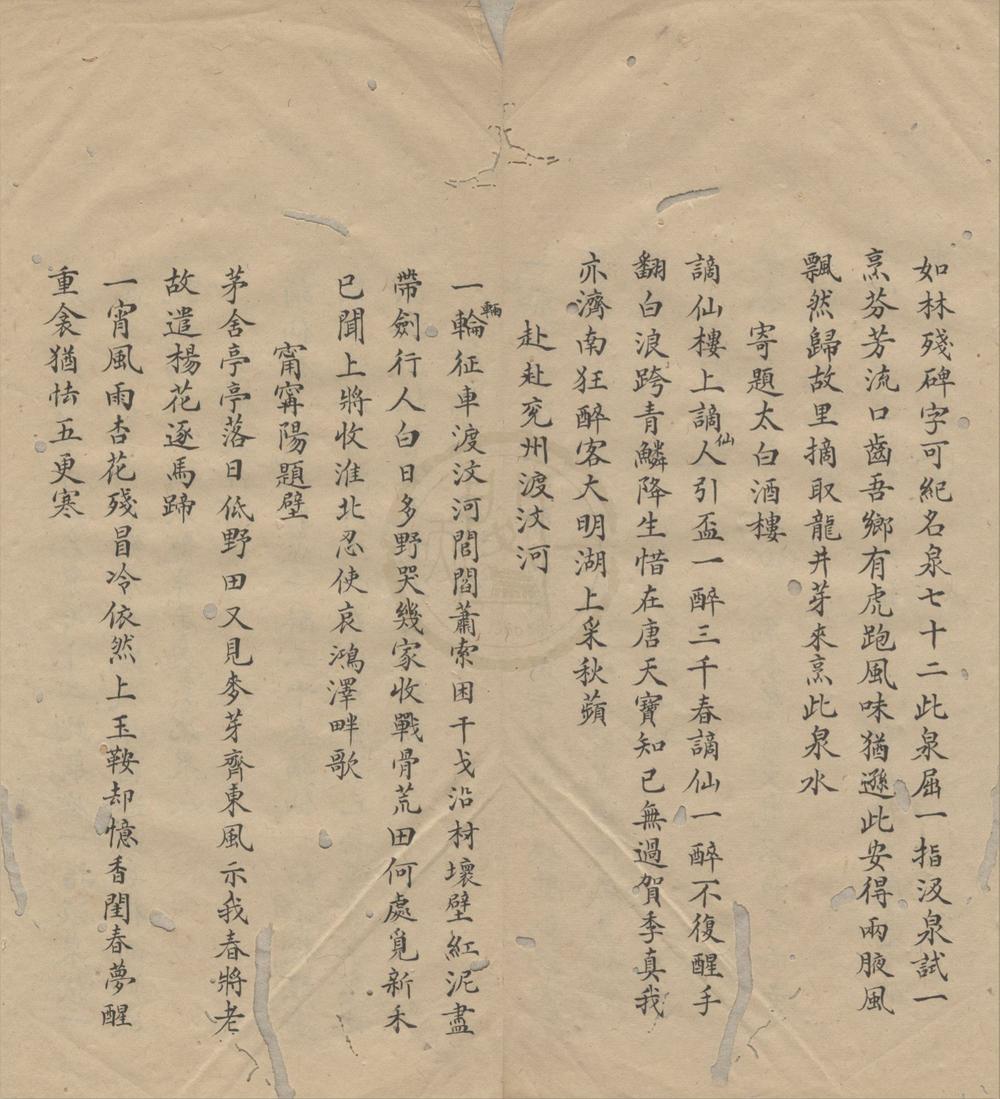 如林殘碑字可紀名泉七十二此泉屈一指汲泉試一
烹芬芳流口齒吾鄉有虎跑風味猶遜此安得兩腋風
飄然歸故里摘取龍井芽來烹此泉水
寄題太白酒樓
謫仙樓上謫仙人引盃一醉三千春謫仙一醉不復醒手
翻白浪跨青鱗降生惜在唐天寶知已無過賀季真我
亦濟南狂醉客大明湖上采秋蘋
赴赴兖州渡汶河
一輪輛征車渡汶河閭閻蕭索困干戈沿村壞壁紅泥盡
帶劍行人白日多野哭幾家收戰骨荒田何處覓新禾
已聞上將收淮北忍使哀鴻澤畔歌
甯寗陽題壁
茅舍亭亭落日低野田又見麥芽齊東風示我春將老
故遣楊花逐馬蹄
一宵風雨杏花殘冒冷依然上玉鞍却憶香閨春夢醒
重衾猶怯五更寒